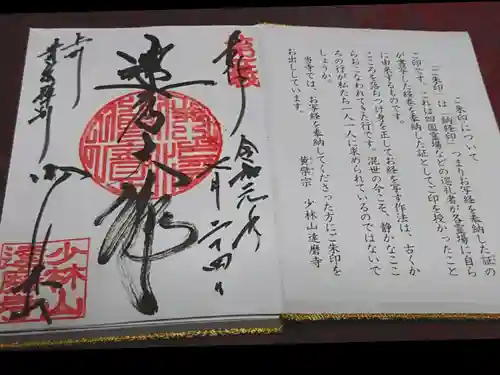 ご朱印について
「ご朱印」は「納経印」つまりお写経を奉納した証の
ご印です。これは四国霊場などの巡礼者が各霊場に自ら
が書写した経巻を奉納した証としてご印を授かったこと
に由来するものです。
こころを落ちつけ身を正してお経を写す作法は、古くか
らおこなわれてきた行です。混世の今こそ、静かなここ
ろの行が私たち一人一人に求められているのではないで
しょうか。
当寺では、お写経を奉納してくださった方にご朱印を
お出ししています。
黄檗宗 少林山達磨寺
奉拝
令和元年
月二十四日
達磨大師
上州
少林山
少林山
達磨寺